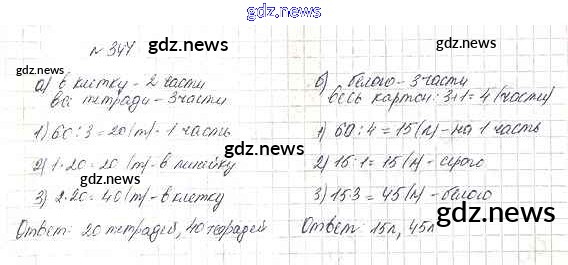 gdz.news
№ 347
gdz.news
gdz.news
а) в клетку - 2 части
все тетради - 3 части
1) 60 : 3 = 20 (т) - 1 часть
gdz.news
2) 1·20 = 20 (т) - в линейку
gdz.news
3) 2·20 = 40 (т) - в клетку
Ответ: 20 тетрадей, 40 тетрадей
gdz.news
б) белого - 3 части
весь картон: 3+1 = 4 (части)
gdz.news
1) 60 : 4 = 15 (л) - на 1 часть
2) 15·1 = 15 (л) - серого
3) 15·3 = 45 (л) - белого
gdz.news
Ответ: 15 л, 45 л